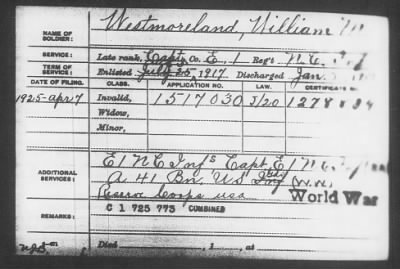 NAME OF SOLDIER: Westmoreland, William M
SERVICE: Late rank, Capt Co. E, 1 Reg't N.C. Inf
TERM OF SERVICE: Enlisted July 25, 1917 Discharged Jan.
DATE OF FILING. CLASS. APPLICATION NO. LAW. CERTIFICATE
1925-apr 7 Invalid, 1517030 3/20
Widow,
Minor,
ADDITIONAL SERVICES: E 1 N C Inf Capt. E 1 N.C.
A 41 Bn. US (W.W.)
Reserve Corps usa World War
C 1 725 773 COMBINED
REMARKS:
Died , 1 , at